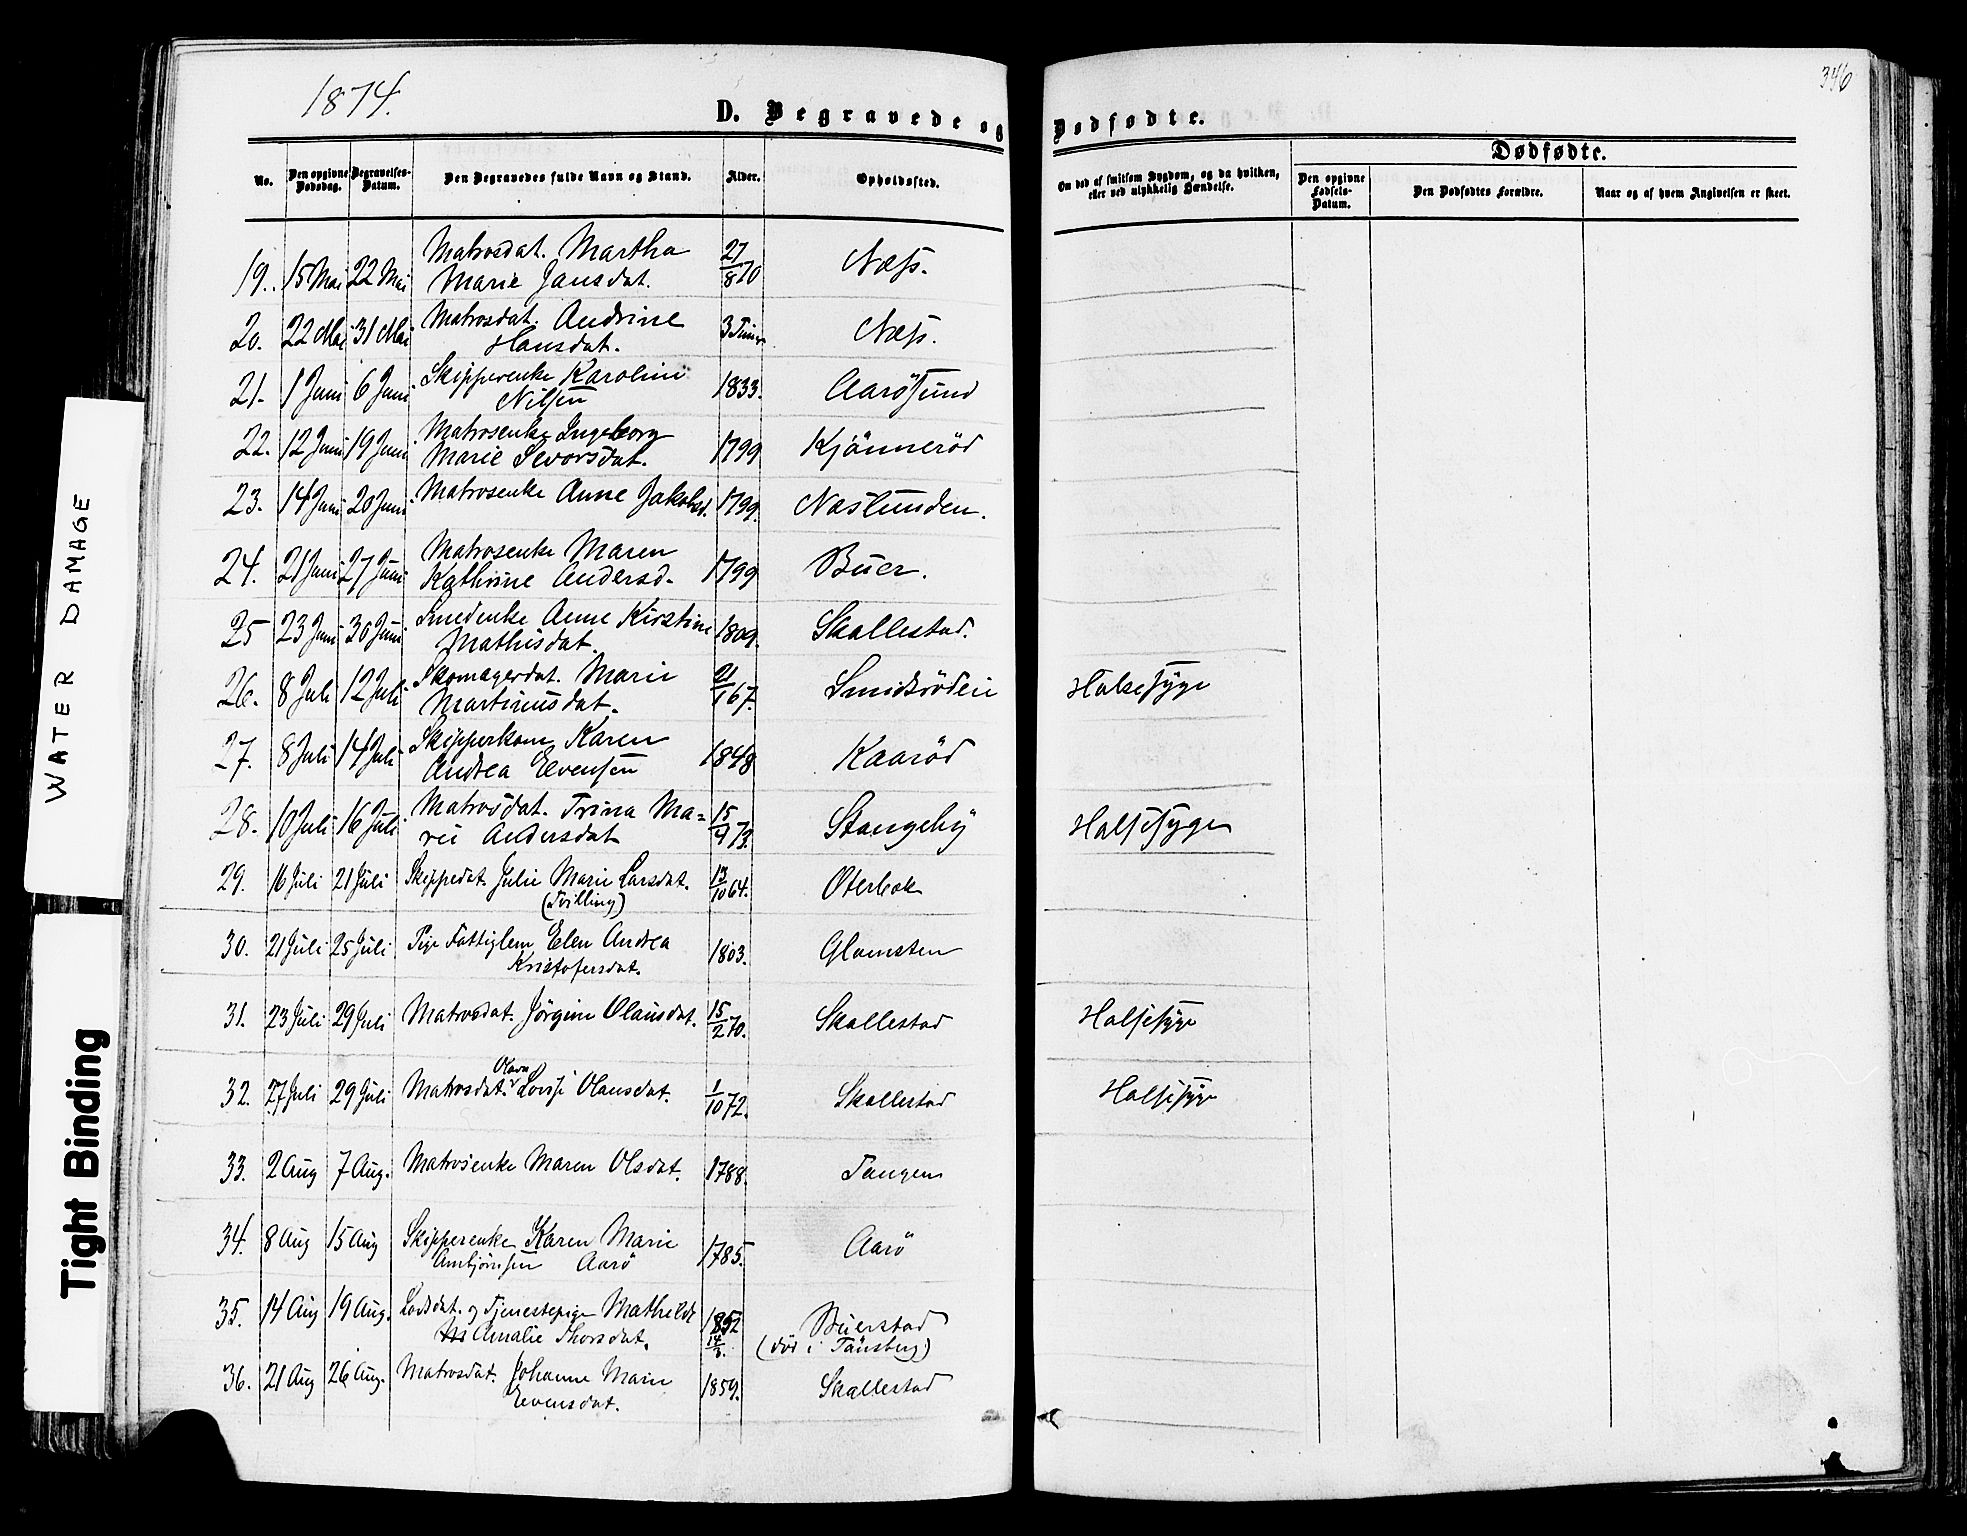 1874.
346
D. Begravede og Dødfødte.
No.
Den opgivne Dødsdag.
Begravelses-Datum.
Den Begravedes fulde Navn og Stand.
Alder.
Opholdssted.
Om død af smitsom Sygdom, og da hvilken, eller ved ulykkelig Hændelse.
Dødfødte.
Den opgivne Fødsels-Datum.
Den Dødfødtes Forældre.
Naar og af hvem Angivelsen er skeet.
19. 15 Mai 22 Mai Matrosdat. Martha 27/8 70 Næss.
Marie Jansdat.
20. 22 Mai 31 Mai Matrosdat. Andrine 3 Timer Næss.
Hansdat.
21. 1 Juni 6 Juni Skipperenke Karoline 1833. Aarösund
Nilsen
22. 12 Juni 19 Juni Matrosenke Ingeborg 1799 Kjönneröd
Marie Sevorsdat.
23. 14 Juni 20 Juni Matrosenke Anne Jakobsd. 1799. Naslunden.
24. 21 Juni 27 Juni Matrosenke Maren 1799 Buer.
Kathrine Andersd.
25 23 Juni 30 Juni Smedenke Anne Kirstine 1809. Skallestad.
Mathisdat.
26. 8 Juli 12 Juli Skomagerdat. Marie 21/1 67. Smidsröden Halsesyge
Martinusdat.
27. 8 Juli 14 Juli Skipperkone Karen 1848 Kaaröd
Andrea Evensen
28. 10 Juli 16 Juli Matrosdat. Trina Ma= 15/9 73. Stangeby Halsesyge
rie Andersdat
29. 16 Juli 21 Juli Skipperdat. Julie Marie Larsdat. 13/10 64. Oterbek
(Tvilling)
30. 21 Juli 25 Juli Pige Fattiglem Elen Andrea 1803. Glomsten
Kristofersdat.
31. 23 Juli 29 Juli Matrosdat. Jörgine Olausdat. 15/2 70. Skallestad Halsesyge
Olava
32. 27 Juli 29 Juli Matrosdat. Lovise Olausdat. 1/10 72. Skallestad Halsesyge
33. 2 Aug 7 Aug. Matrosenke Maren Olsdat. 1788. Tangen
34. 8 Aug 15 Aug Skipperenke Karen Marie 1785. Aarö
Arnbjörnsen Aarö
35. 14 Aug 19 Aug. Lodsdat. og Tjenestepige Mathilde 1852 Buerstad
Amalie Thorsdat. (död i Tönsberg)
36. 21 Aug 26 Aug. Matrosdat. Johanne Marie 1859. Skallestad
Evensdat.
WATER DAMAGE
Tight Binding